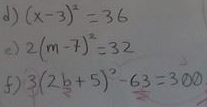 d) (x-3)² = 36
e) 2(m-7)² = 32
f) 3(2b+5)² - 63 = 300